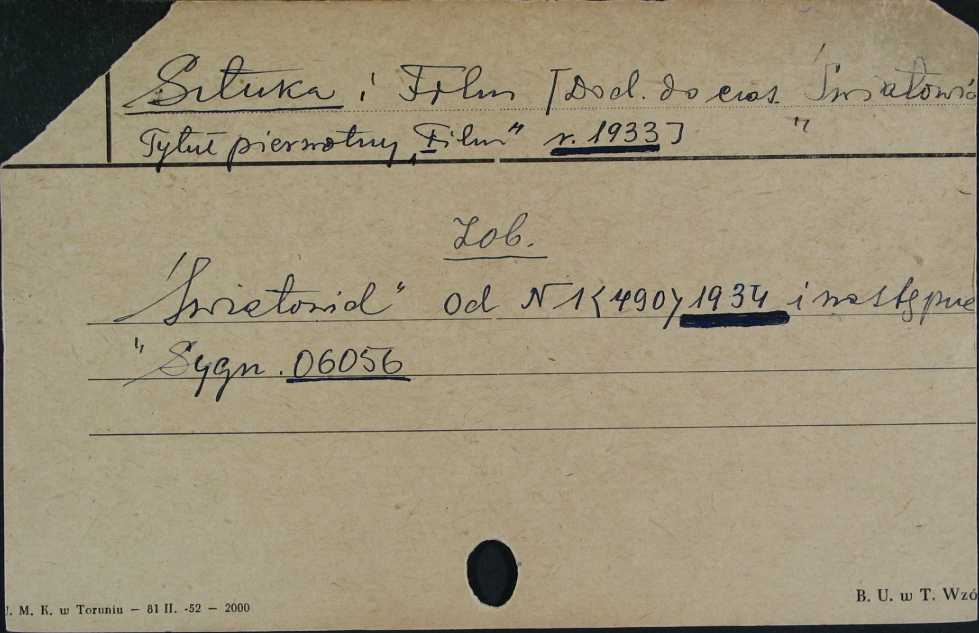 Sztuka i Film [Dod. do czas. Światowid
Tytuł pierwotny „Film" r. 1933] "
Zob.
Światowid" od N 1<490> 1934 i następne
" Sygn. 06056
U. M. K. w Toruniu — 81 II. -52 — 2000
B. U. w T. Wzó